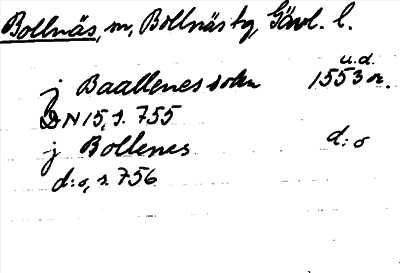 Bollnäs, m, Bollnäs tg, Gävl. l.
u.d.
j Baallenes sokn 1553 or.
DN 15, s. 755
j Bollenes d:o
d:o, s. 756